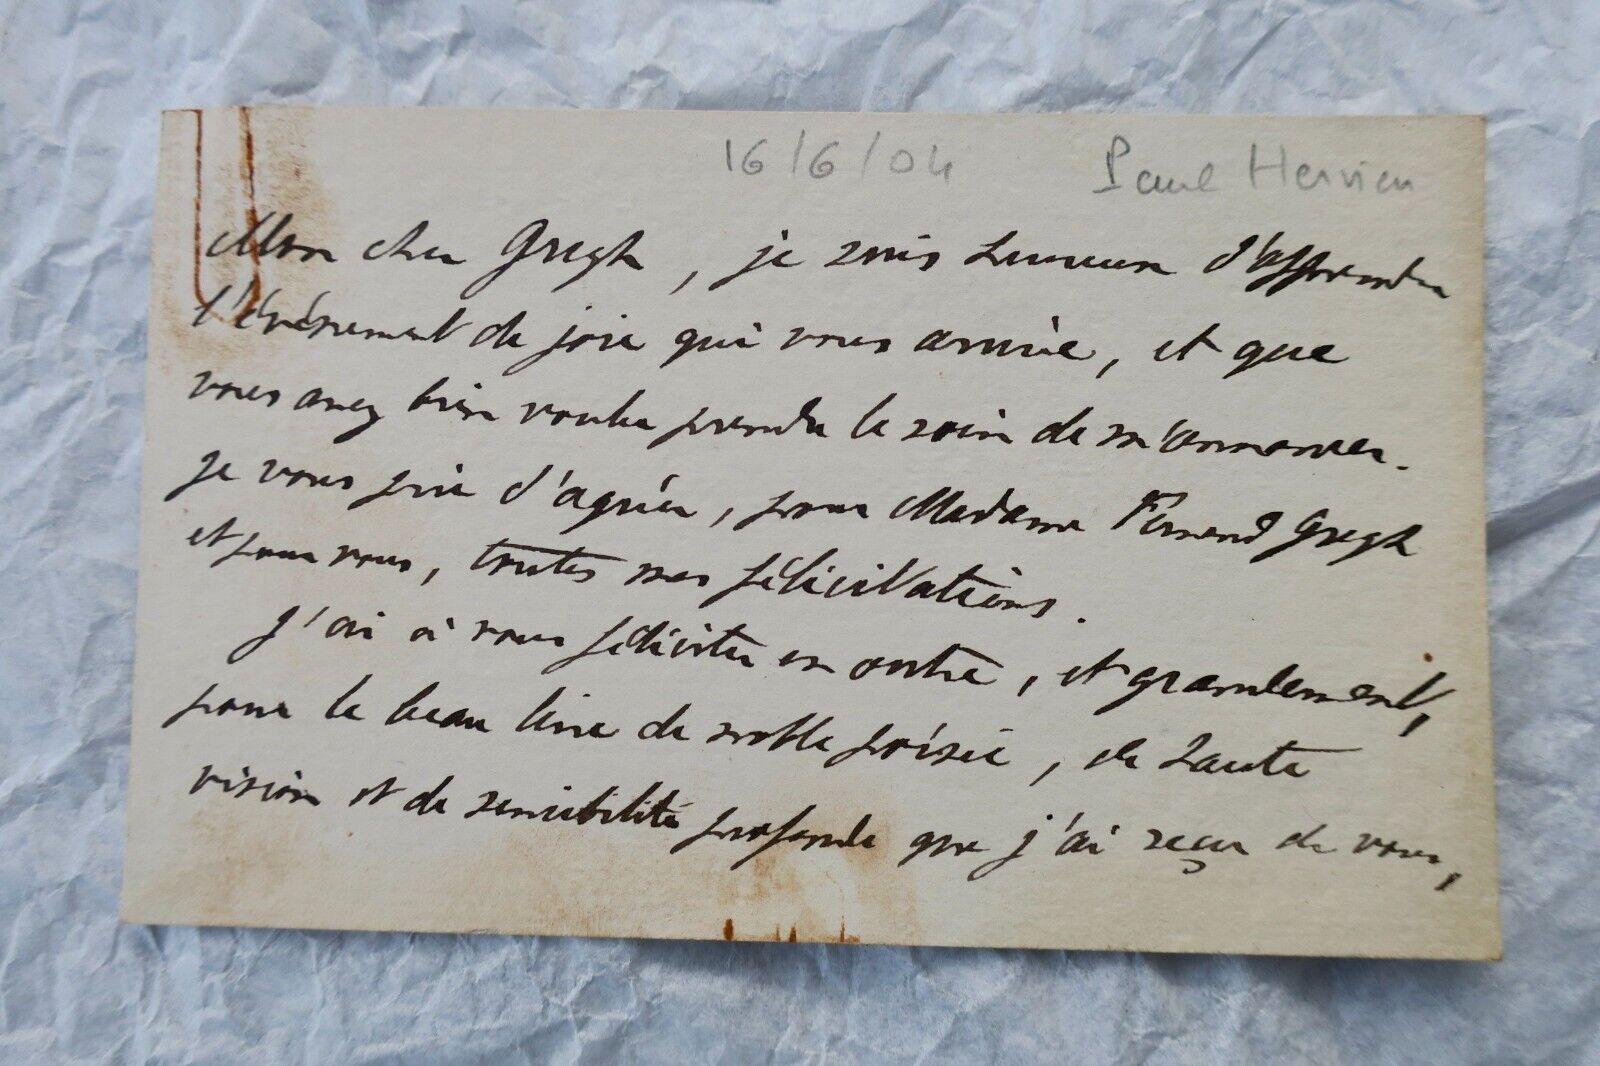 16/6/04 Paul Hervieu
Mon cher Gregh, je suis heureux d'apprendre
l'événement de joie qui vous arrive, et que
vous avez bien voulu prendre le soin de m'annoncer.
Je vous prie d'agréer, pour Madame Fernand Gregh
et pour vous, toutes mes félicitations.
J'ai à vous féliciter en outre, et grandement,
pour le beau livre de noble poésie, de haute
vision et de sensibilité profonde que j'ai reçu de vous,